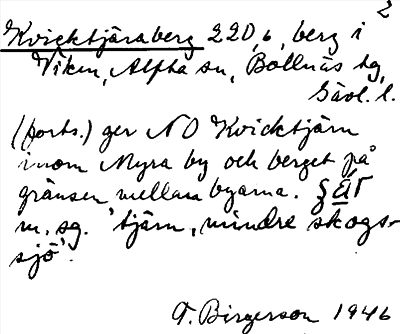 2
Kvicktjäraberg 220,6, berg i
Viken, Alfta sn, Bollnäs tg,
Gävl. l.
(forts.) ger NO Kvicktjärn
inom Myra by och berget på
gränsen mellan byarna.
m. sg. 'tjärn, mindre skogs-
sjö'.
T. Birgerson 1946